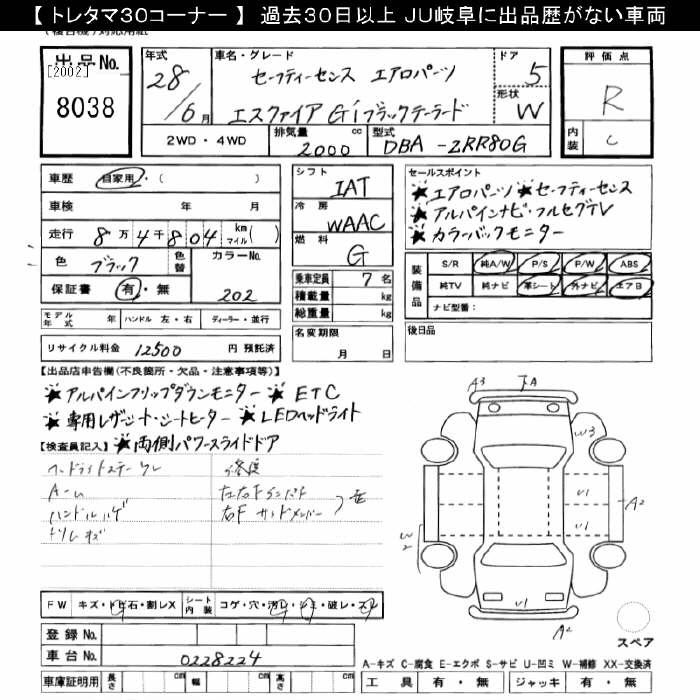 【 トレタマ30コーナー 】 過去30日以上 JU岐阜に出品歴がない車両
出品No.
[2002]
8038
年式
28/6月
車名・グレード
セーフティーセンス エアロパーツ
エスクァイア Giブラックテーラード
ドア
5
形状
W
2WD・4WD
排気量 2000 cc
型式 DBA-ZRR80G
評価点
R
内装
C
車歴 自家用・( )
車検 年 月
走行 8万4千804 km マイル( )
色 ブラック 色替
カラーNo. 202
保証書 有・無
シフト IAT
冷房 WAAC
燃料 G
乗車定員 7名
積載量 kg
総重量 kg
名変期限 月 日
セールスポイント
★エアロパーツ ★セーフティーセンス
★アルパインナビ・フルセグTV
★カラーバックモニター
装備品
S/R 純A/W P/S P/W ABS
純TV 純ナビ 革シート 外ナビ エアB
ナビ型番:
後日品
モデル年式 年 ハンドル 左・右 ディーラー・並行
リサイクル料金 12500 円 預託済
【出品店申告欄(不良箇所・欠品・注意事項等)】
★アルパインフリップダウンモニター ★ETC
★専用レザーシート・シートヒーター ★LEDヘッドライト
【検査員記入】 ★両側パワースライドドア
修復
ハンドルハゲ
A3
A
W3
U1
U1
A2
W2
U1
A2
FW キズ・トビ石・割レX シート内装 コゲ・穴・汚レ・シミ・破レ・スレ
登録No.
車台No. 0228224
スペア
A-キズ C-腐食 E-エクボ S-サビ U-凹ミ W-補修 XX-交換済
車庫証明用 長さ cm 幅 cm 高さ cm
工具 有・無 ジャッキ 有・無